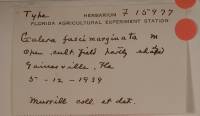 Type HERBARIUM F 15977
FLORIDA AGRICULTURAL EXPERIMENT STATION
Galera fascimarginata M
open cult. field partly shaded
Gainesville, Fla
5-12-1939
Murrill coll. et det.